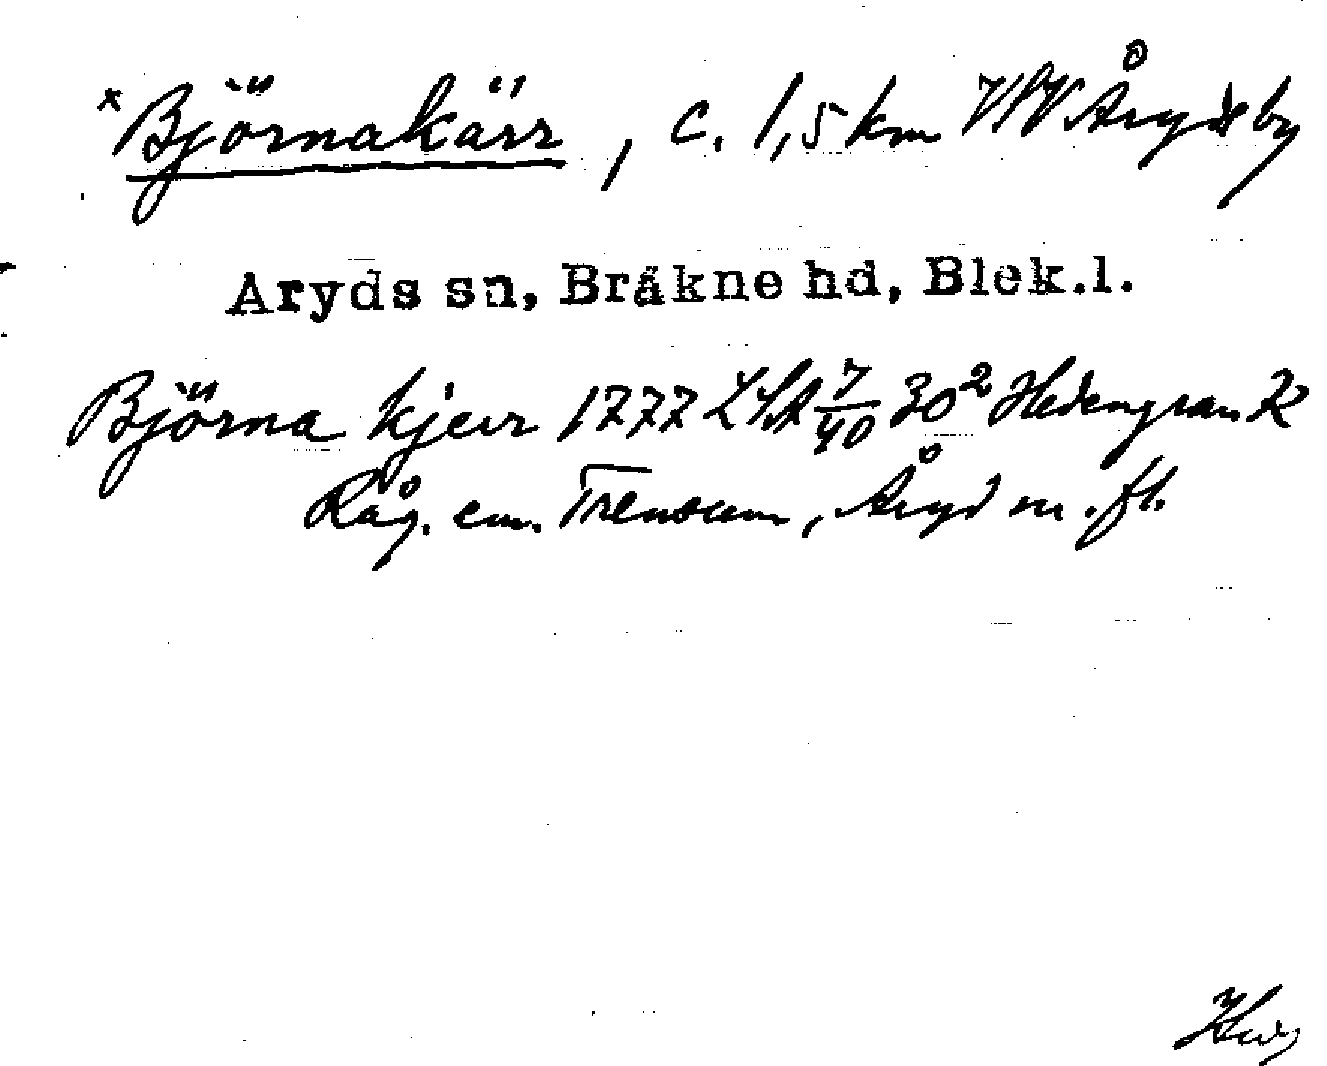 *Björnakärr, c. 1,5 km VSV Åryds by
Aryds sn, Bräkne hd, Blek.l.
Björna kjerr 1777 LSA 7/40 30² Hedengran K
Råg. em. Trensum, Åryd m.fl.